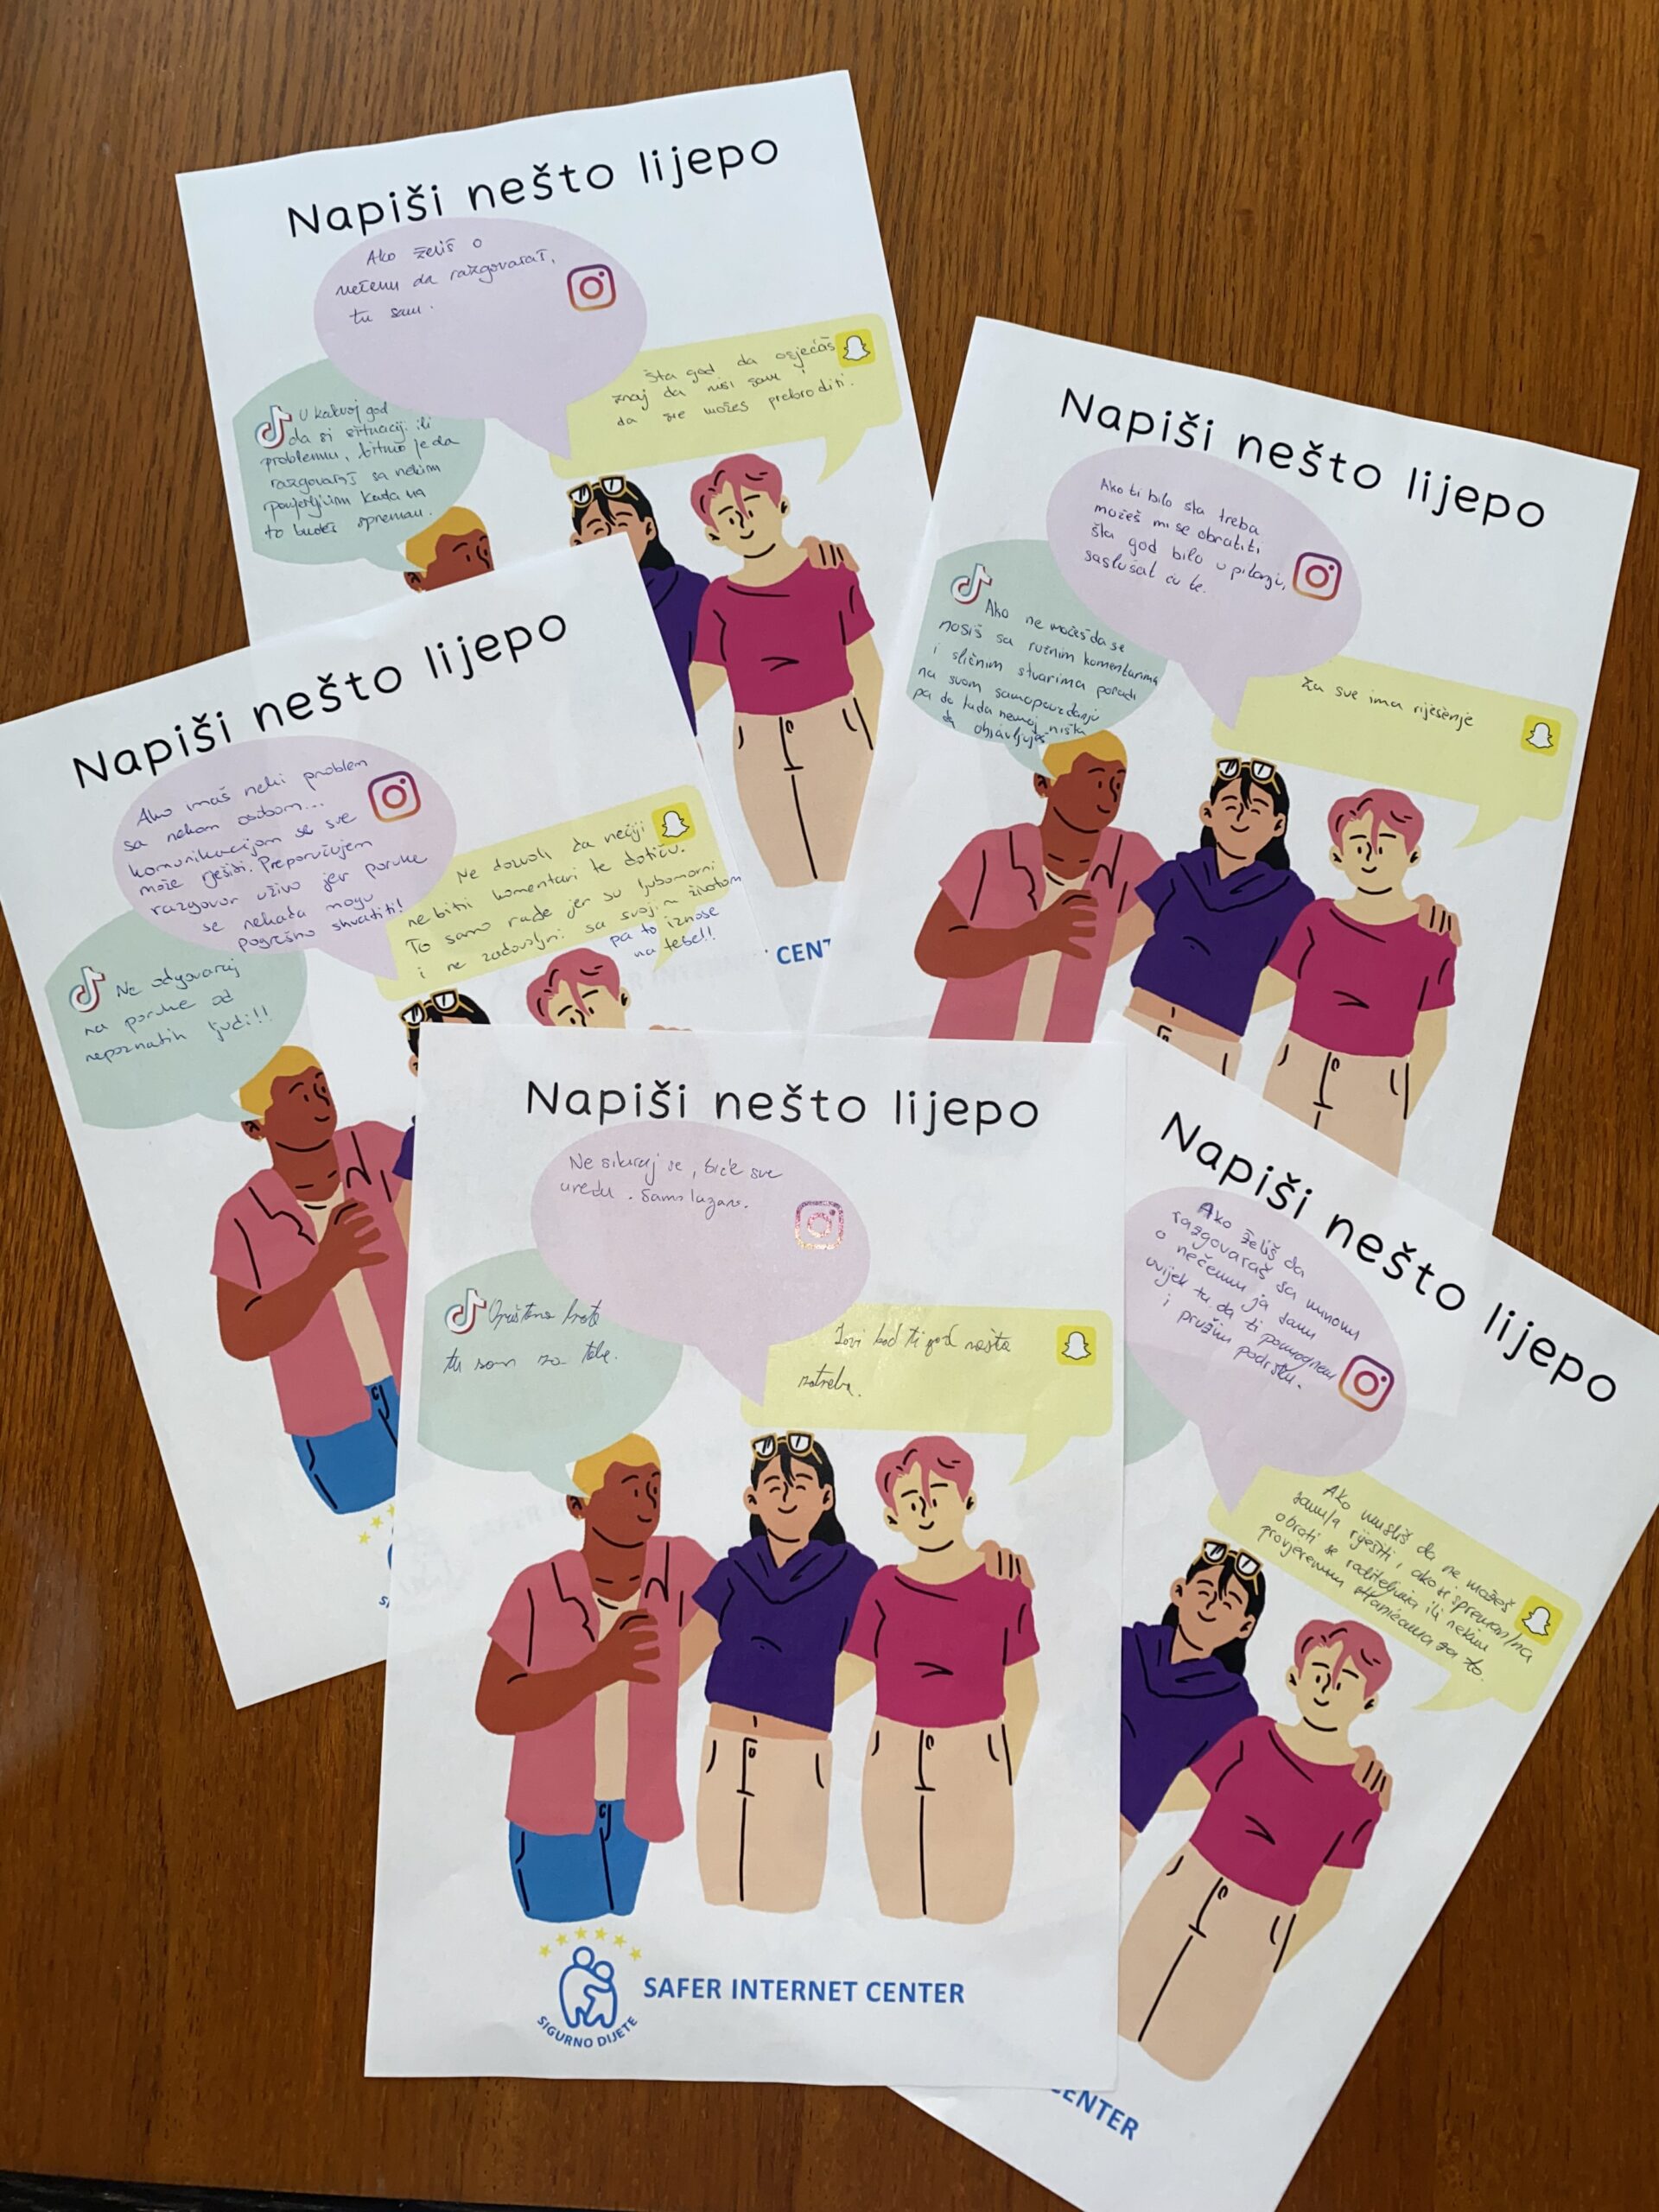 Napiši nešto lijepo
Ako želiš o
nečemu da razgovaraš,
tu sam.
šta god da osjećaš
znaj da nisi sam i
da sve možeš prebroditi.
U kakvoj god
da si situaciji ili
problemu, bitno je da
razgovaraš sa nekim
povjerljivim kada na
to budeš spreman.
CENT
Napiši nešto lijepo
Ako ti bilo šta treba
možeš mi se obratiti
šta god bilo u pitanju,
saslušat ću te.
Ako ne možeš da se
nosiš sa ružnim komentarima
i sličnim stvarima poradi
na svom samopouzdanju
pa do tada nemoj ništa
da objavljuješ
Za sve ima riješenje
Napiši nešto lijepo
Ako imaš neki problem
sa nekom osobom...
komunikacijom se sve
može rješiti. Preporučujem
razgovor uživo jer poruke
se nekada mogu
pogrešno shvatiti!
Ne dozvoli da nečiji
ne bitni komentari te dotiču.
To samo rade jer su ljubomorni
i ne zadovoljni sa svojim životom
pa to iznose
na tebe!!
Ne odgovaraj
na poruke od
nepoznatih ljudi!!
Napiši nešto lijepo
Ne sikiraj se, biće sve
uredu. Samo lagano.
Opušteno brate
tu sam za tebe.
Zovi kad ti god nešta
zatreba.
SIGURNO DIJETE
SAFER INTERNET CENTER
Napiši nešto lijepo
Ako želiš da
razgovaraš sa mnom
o nečemu ja sam
uvijek tu da ti pomognem
i pružim podršku.
Ako misliš da ne možeš
sam/a riješiti, ako si spreman/na
obrati se roditeljima ili nekim
provjerenim stranicama za to.
CENTER